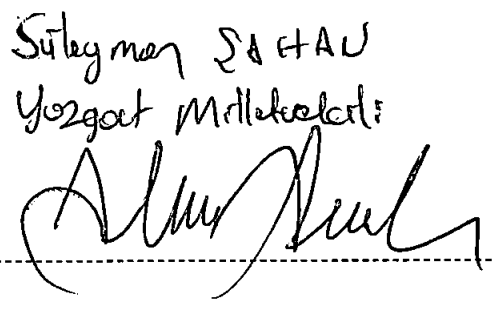 Süleyman ŞAHAN
Yozgat Milletvekili